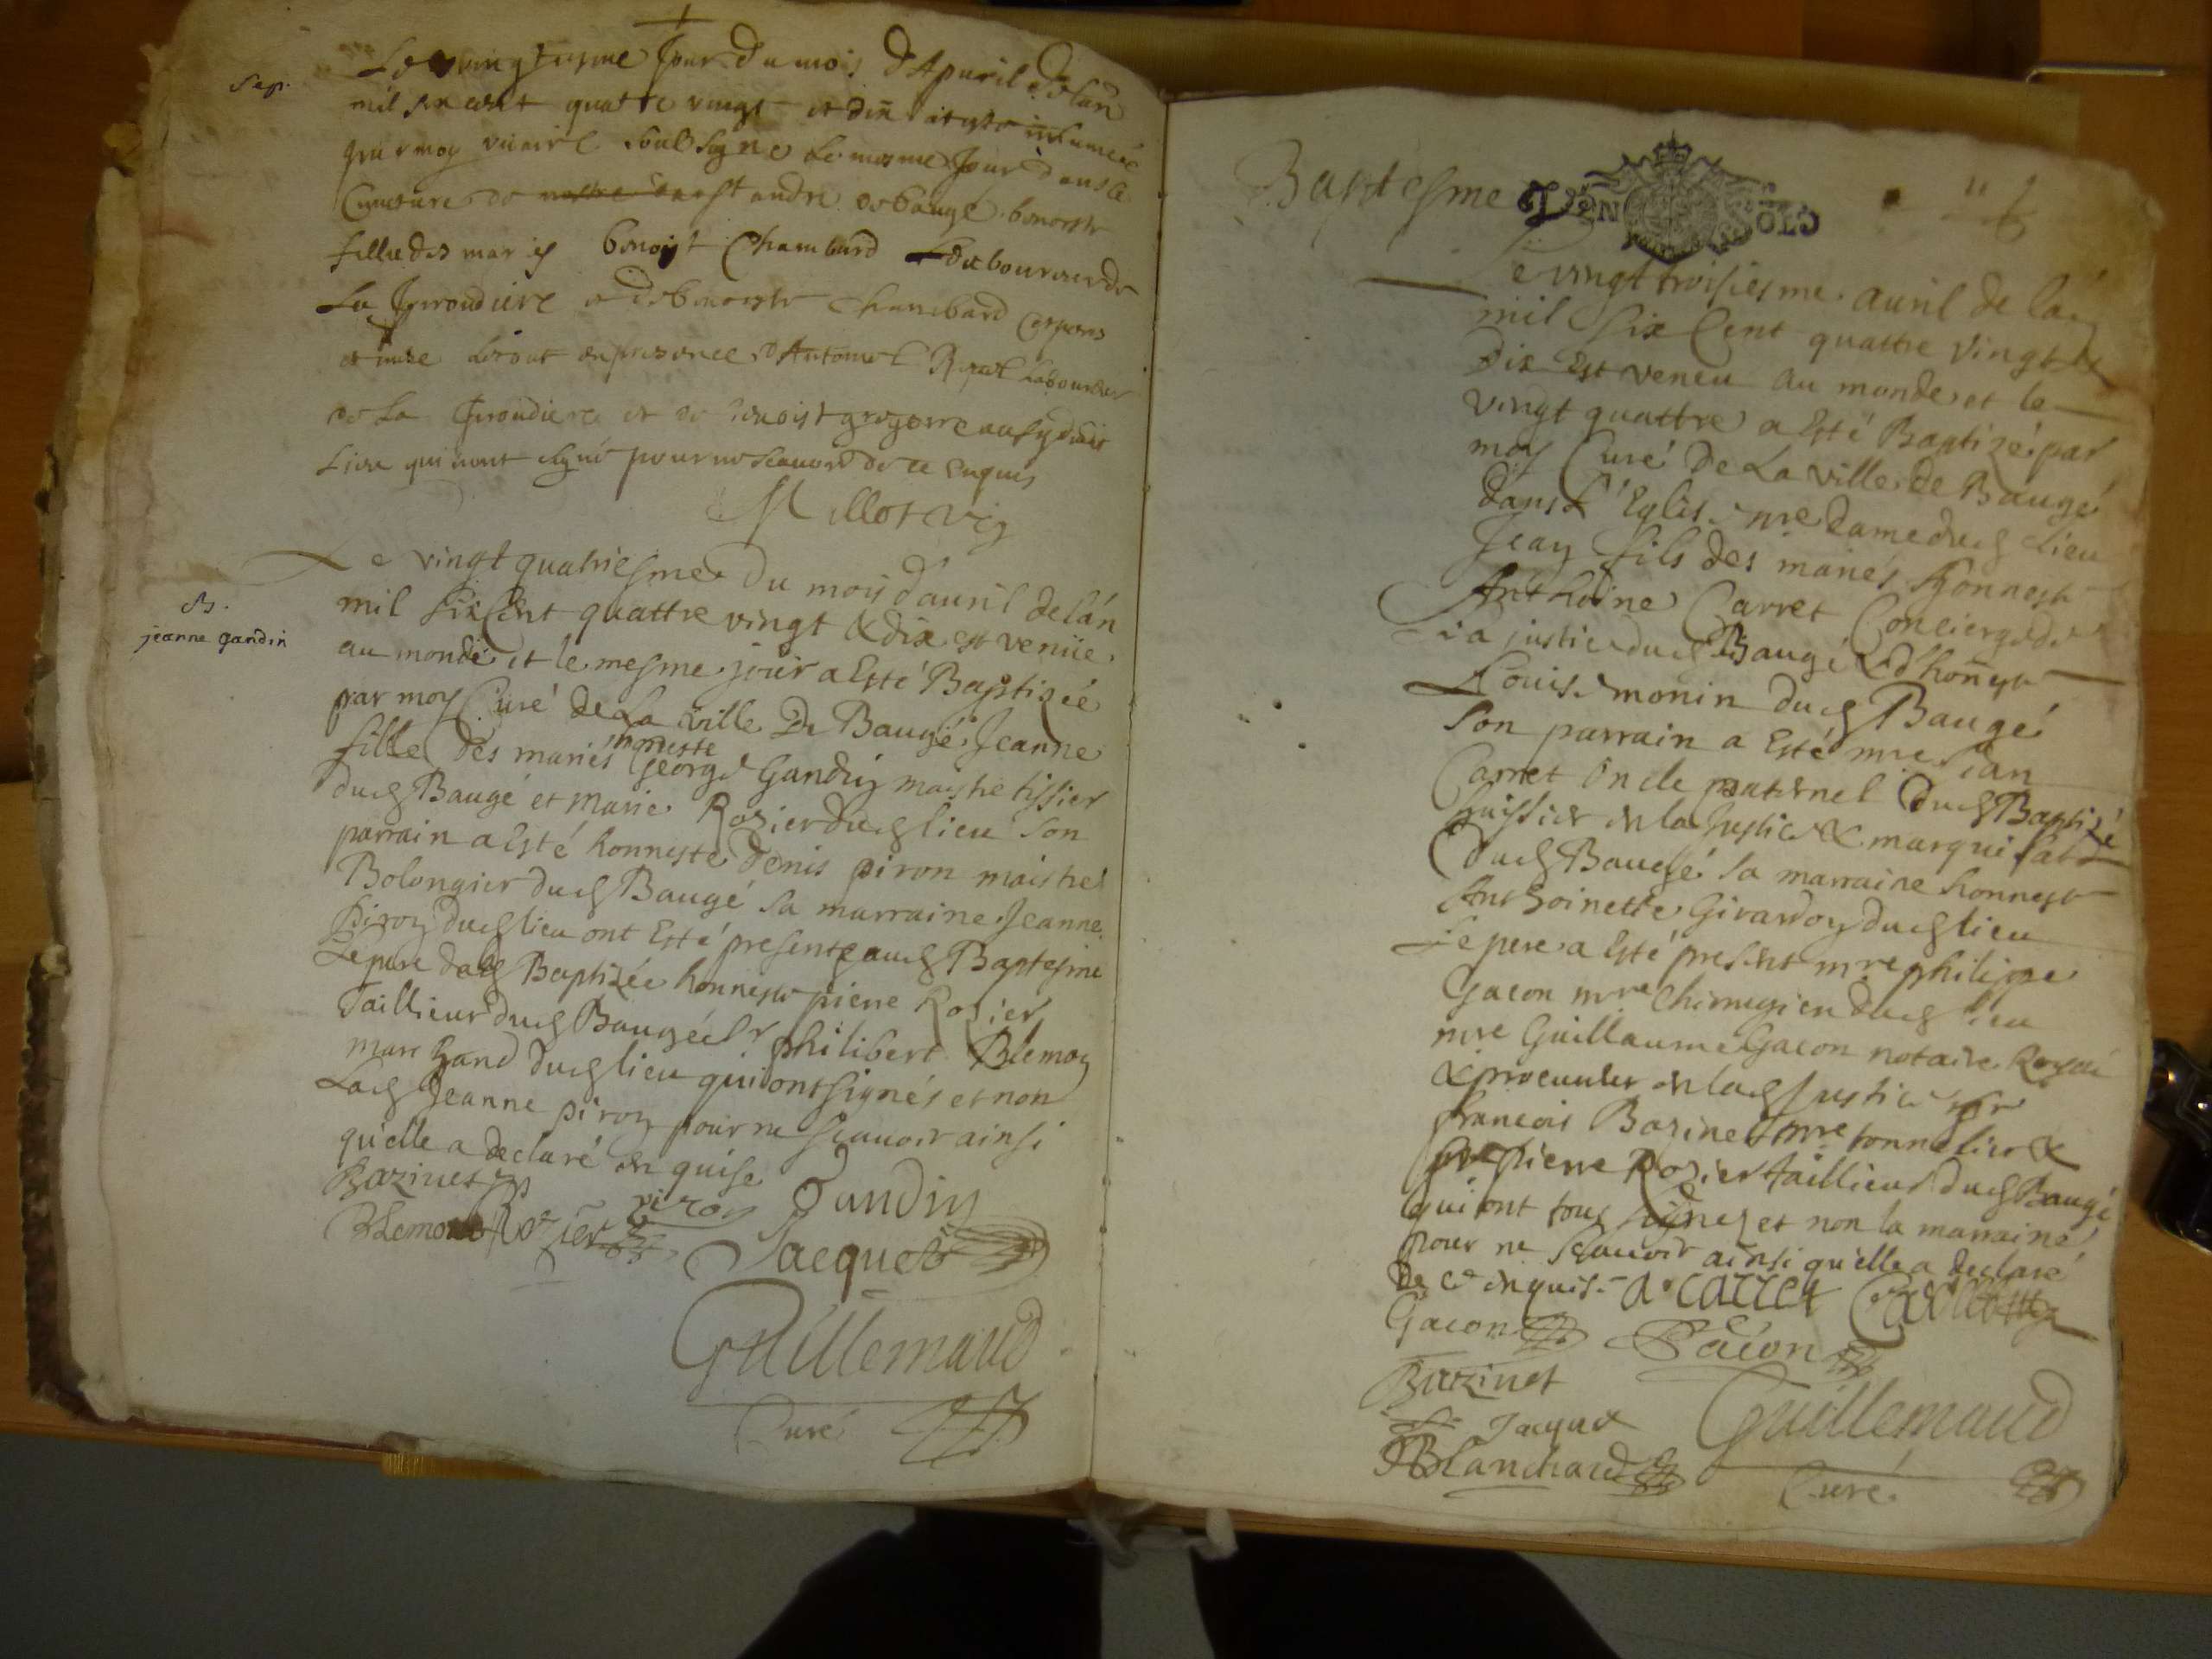 Sep.
Le vingtiesme Jour du mois d'Apuril de lan
mil six cent quatre vingt et dix a este inhumée
par moy vicaire soubsigne le mesme Jour dans le
Cymetiere de nostre St andre de baugé benoiste
fille des maries benoist Chambard laboureur de
La Giroudiere et de benoiste Chambard
le tout en presence d'Antoine Laboureur
de La Giroudiere et de benoist gregoire aussy dudit
Lieu qui nont signé pour ne scauoir de ce enquis
Millot vic
B.
jeanne gandin
Le vingt quatriesme du mois d'auril de lán
mil six Cent quattre vingt & dix est venüe
au monde et le mesme jour a Esté Baptisée
par moy Curé de La ville De Baugé Jeanne
fille des mariés honneste Georg Gandin maistre tissier
dud Baugé et Marie Rosier dud lieu son
parrain a Esté honneste denis piron maistre
Bolongier dud Baugé sa marraine Jeanne
piron dud lieu ont Esté present aud Baptesme
Le pere de la d Baptizée honneste pierre Rosier
Taillieur dud Baugé & Sr philibert Blemon
marchand dud lieu qui ont signés et non
Lad Jeanne piron pour ne scauoir ainsi
qu'elle a declaré en quise
Bazinet
piron Gandin
Rosier Jacquet
Guillemaud
Curé
Baptesme GEN OLS
Le vingt troisiesme auril de lán
mil Six Cent quattre vingt &
Dix Est veneu au monde et le
vingt quattre a Esté Baptizé par
moy Curé de La ville de Baugé
dans L'Eglise nre dame dud Lieu
Jean fils des mariés honneste
Anthoine Carret Concierge de
la justice dud Baugé & d'honnest
Louise monin dud Baugé
son parrain a Esté mre Jean
Carret oncle paternel dud Baptizé
huissier en la Justice & marquisat
dud Baugé sa marraine honneste
Anthoinette Girardon dud lieu
le pere a Esté present mre philippe
Gacon mre Chirurgien dud lieu
mre Guillaume Gacon notaire Royal
& procureur en lad Justice Sr
francois Bazinet mre tonnelier &
pierre Rosier taillieur dud Baugé
qui ont tous signez et non la marraine
pour ne scauoir ainsi qu'elle a declaré
De ce enquise a. carret Carret
Gacon Gacon
Bazinet
Jaquet Guillemaud
Blanchard Curé